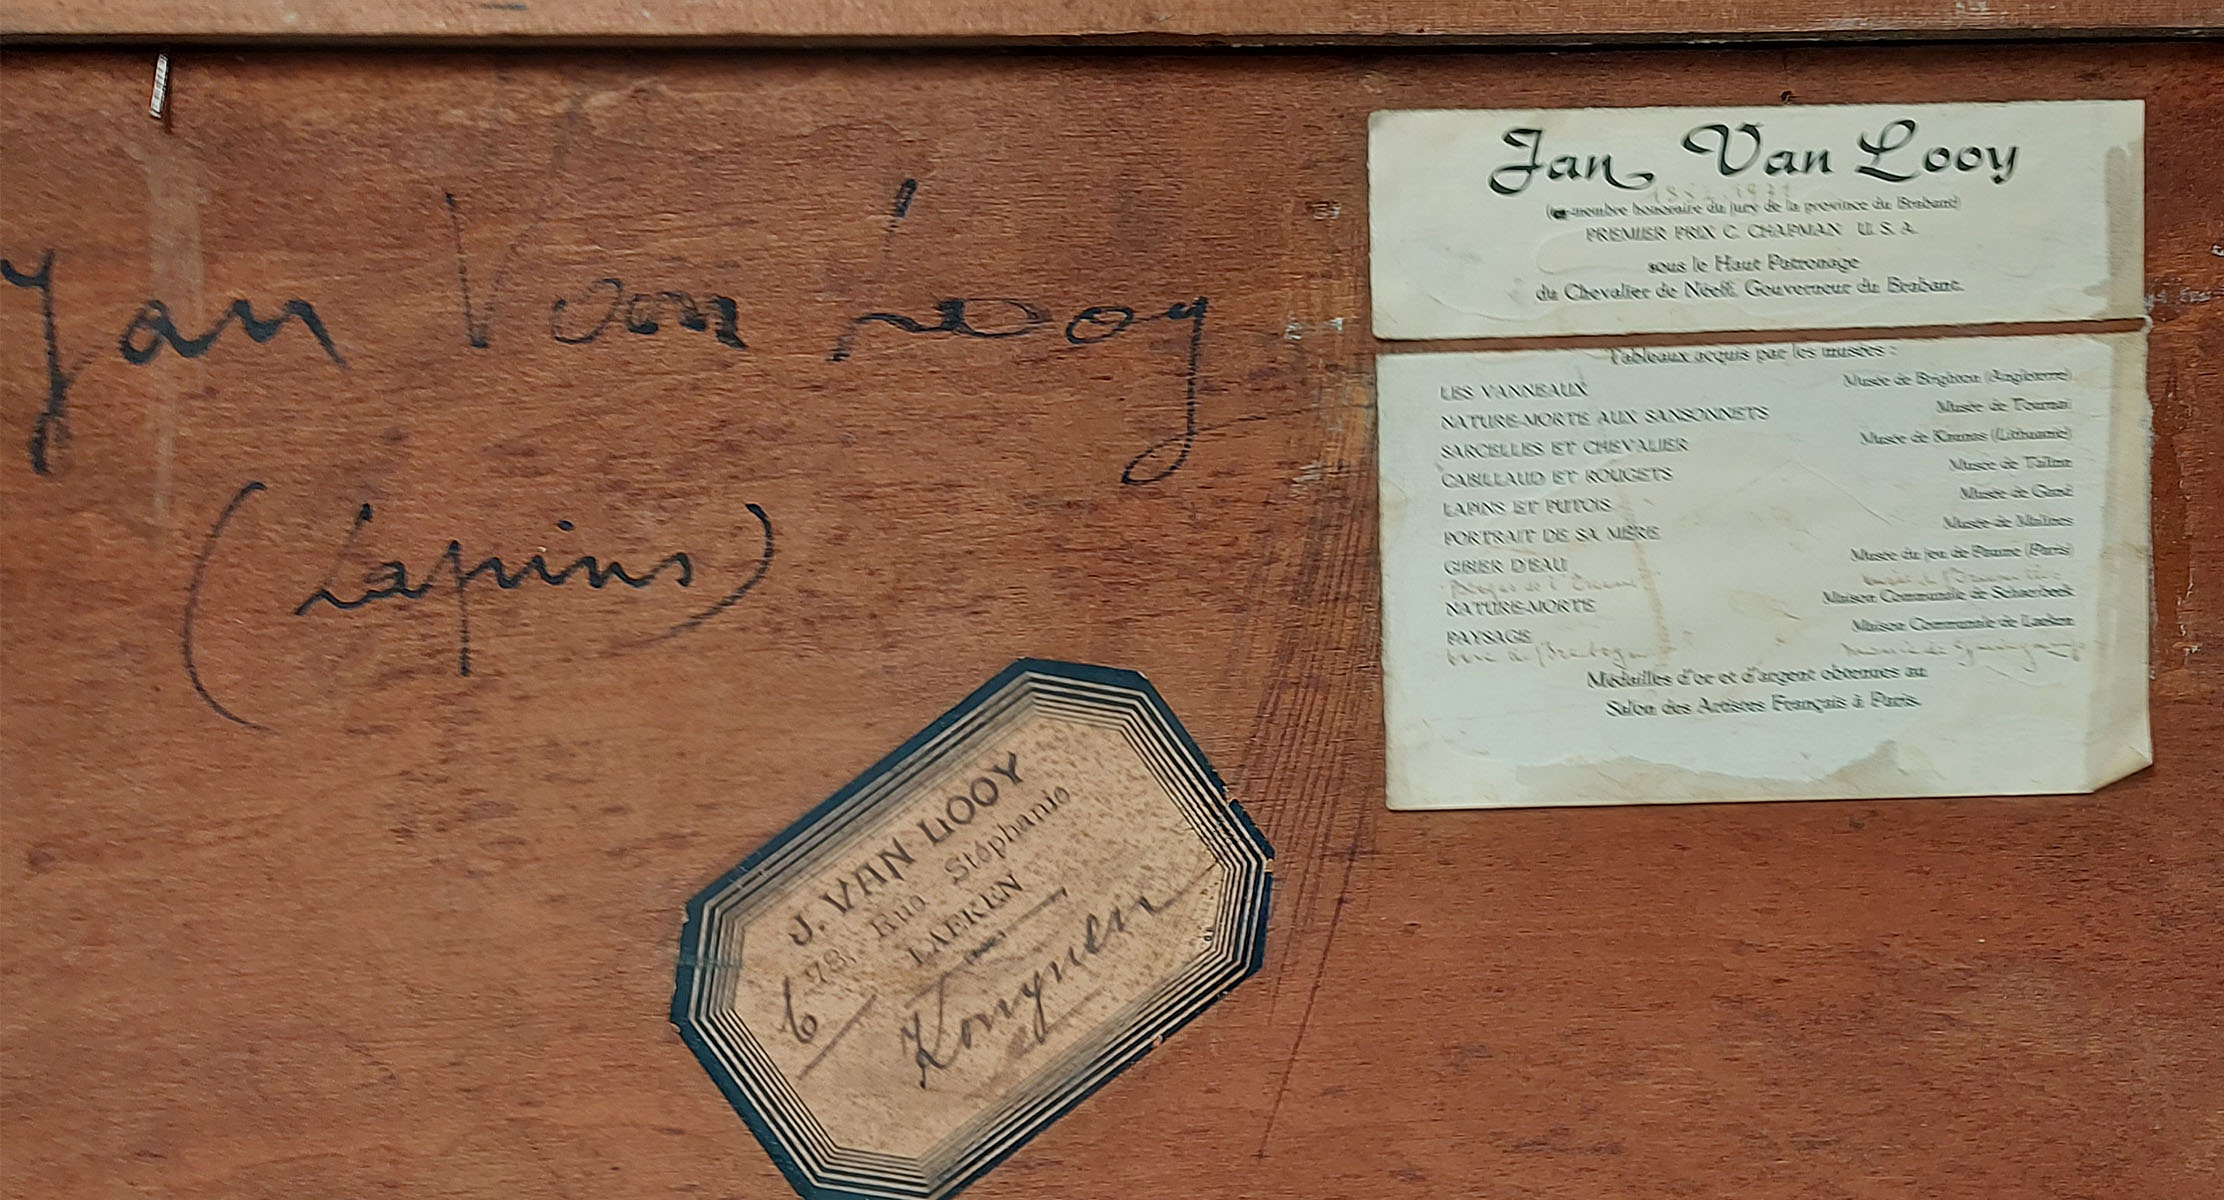 Jan Van Looy
(Lapins)
J. VAN LOOY
78, Rue Stéphanie
LAEKEN
6
Konynen
Jan Van Looy
(ex-membre honoraire du jury de la province du Brabant)
PREMIER PRIX C. CHAPMAN U. S. A.
sous le Haut Patronage
du Chevalier de Néeff, Gouverneur du Brabant.
Tableaux acquis par les musées :
LES VANNEAUX Musée de Brighton (Angleterre)
NATURE-MORTE AUX SANSONNETS Musée de Tournai
SARCELLES ET CHEVALIER Musée de Kaunas (Lithuanie)
CABILLAUD ET ROUGETS Musée de Tallinn
LAPINS ET PUTOIS Musée de Gand
PORTRAIT DE SA MÈRE Musée de Malines
GIBIER D'EAU Musée du jeu de Paume (Paris)
NATURE-MORTE Maison Communale de Schaerbeek
PAYSAGE Maison Communale de Laeken
Médailles d'or et d'argent obtenues au
Salon des Artistes Français à Paris.